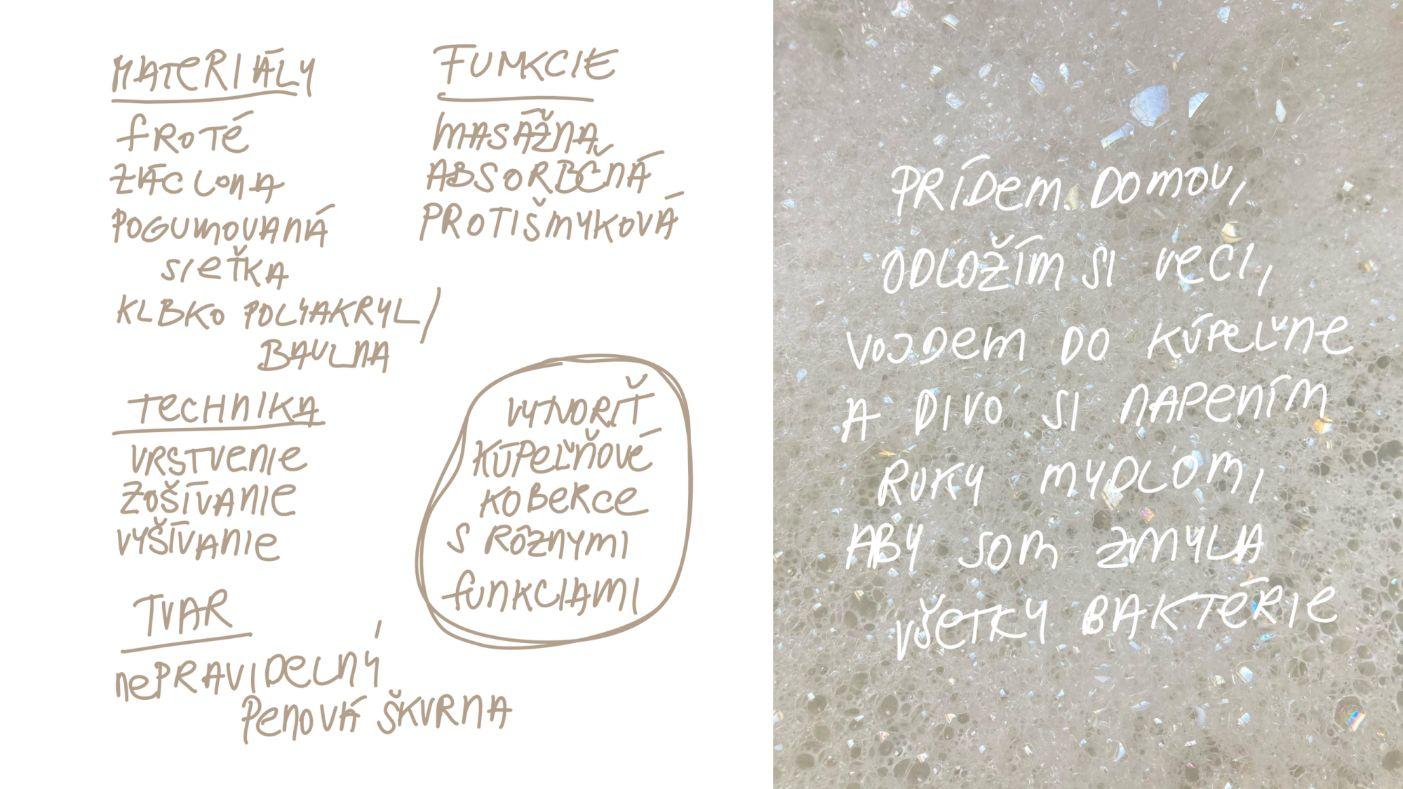 MATERIÁLY
FROTÉ
ZÁCLONA
POGUMOVANÁ
SIEŤKA
KLBKO POLYAKRYL/
BAVLNA
TECHNIKA
VRSTVENIE
ZOŠÍVANIE
VYŠÍVANIE
TVAR
NEPRAVIDELNÝ
PENOVÁ ŠKVRNA
FUNKCIE
MASÁŽNA
ABSORBČNÁ
PROTIŠMYKOVÁ
VYTVORIŤ
KÚPEĽŇOVÉ
KOBERCE
S RÔZNYMI
FUNKCIAMI
PRÍDEM DOMOV,
ODLOŽÍM SI VECI,
VOJDEM DO KÚPEĽNE
A DIVO SI NAPENÍM
RUKY MYDLOM,
ABY SOM ZMYLA
VŠETKY BAKTÉRIE